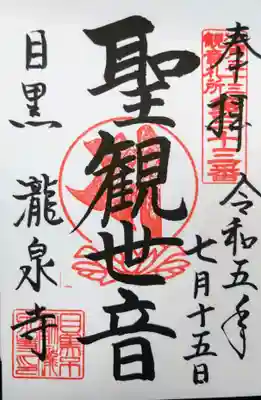 奉拝
令和五年
七月十五日
三十三
観音札所
三十三番
聖観世音
目黒
瀧泉寺